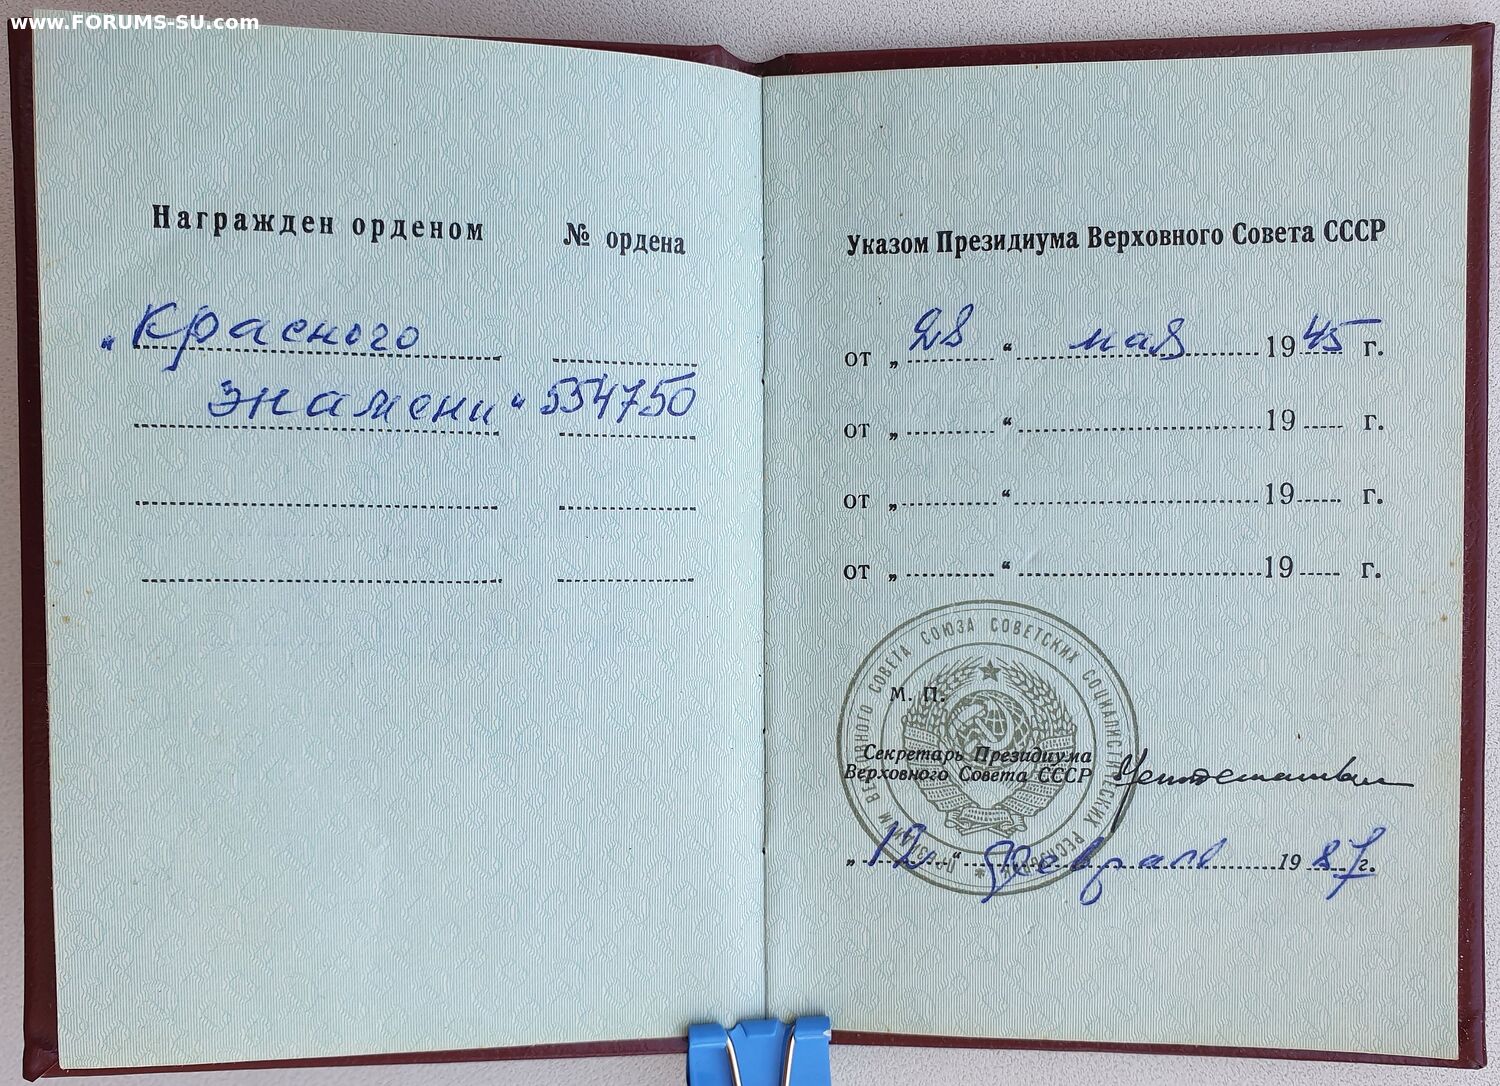 www.FORUMS-SU.com
Награжден орденом
№ ордена
„Красного
знамени“ 554750
Указом Президиума Верховного Совета СССР
от „28“ мая 1945 г.
от „ “ 19 г.
от „ “ 19 г.
от „ “ 19 г.
ПРЕЗИДИУМ ВЕРХОВНОГО СОВЕТА СОЮЗА СОВЕТСКИХ СОЦИАЛИСТИЧЕСКИХ РЕСПУБЛИК
М. П.
Секретарь Президиума
Верховного Совета СССР
„12“ февраля 1987 г.